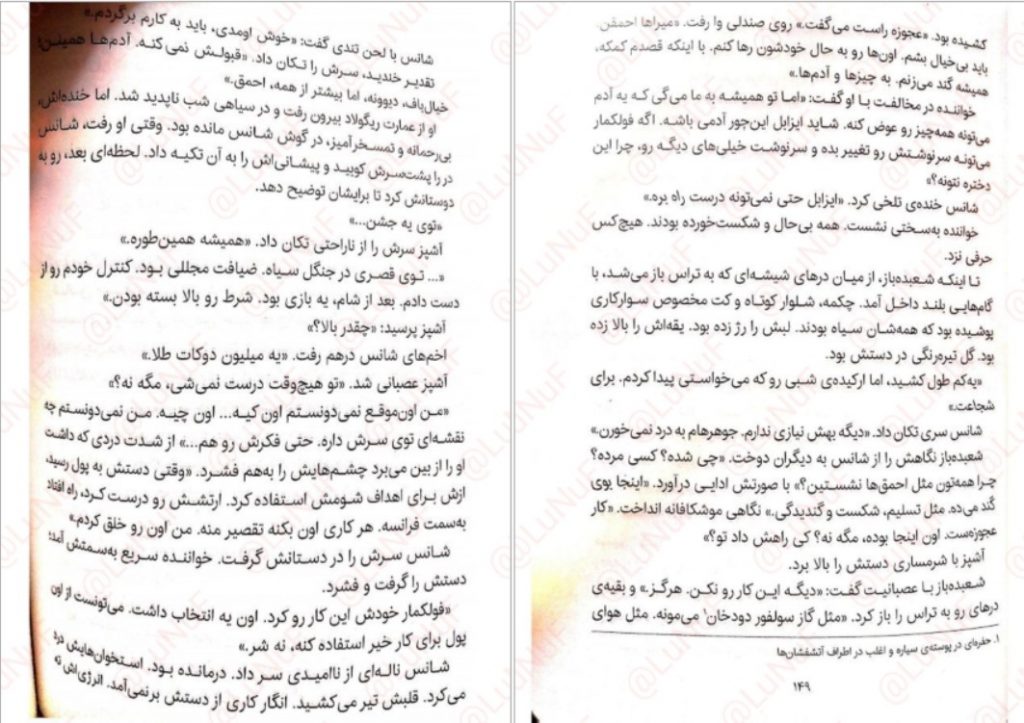 شانس با لحن تندی گفت: «خوش اومدی، باید به کارم برگردم.»
تقدیر خندید، سرش را تکان داد. «قبولش نمی‌کنه. آدم‌ها همینن؛
خیال‌باف، دیوونه، اما بیشتر از همه، احمق.»
او از عمارت ریگولاد بیرون رفت و در سیاهی شب ناپدید شد. اما خنده‌اش،
بی‌رحمانه و تمسخرآمیز، در گوش شانس مانده بود. وقتی او رفت، شانس
در را پشت‌سرش کوبید و پیشانی‌اش را به آن تکیه داد. لحظه‌ای بعد، رو به
دوستانش کرد تا برایشان توضیح دهد.
«توی یه جشن...»
آشپز سرش را از ناراحتی تکان داد. «همیشه همین‌طوره.»
«... توی قصری در جنگل سیاه. ضیافت مجللی بود. کنترل خودم رو از
دست دادم. بعد از شام، یه بازی بود. شرط رو بالا بسته بودن.»
آشپز پرسید: «چقدر بالا؟»
اخم‌های شانس درهم رفت. «یه میلیون دوکات طلا.»
آشپز عصبانی شد. «تو هیچ‌وقت درست نمی‌شی، مگه نه؟»
«من اون‌موقع نمی‌دونستم اون کیه... اون چیه. من نمی‌دونستم چه
نقشه‌ای توی سرش داره. حتی فکرش رو هم...» از شدت دردی که داشت
او را از بین می‌برد چشم‌هایش را به‌هم فشرد. «وقتی دستش به پول رسید،
ازش برای اهداف شومش استفاده کرد. ارتشش رو درست کرد، راه افتاد
به‌سمت فرانسه. هر کاری اون بکنه تقصیر منه. من اون رو خلق کردم.»
شانس سرش را در دستانش گرفت. خواننده سریع به‌سمتش آمد؛
دستش را گرفت و فشرد.
«فولکمار خودش این کار رو کرد. اون یه انتخاب داشت. می‌تونست از اون
پول برای کار خیر استفاده کنه، نه شر.»
شانس ناله‌ای از ناامیدی سر داد. درمانده بود. استخوان‌هایش درد
می‌کرد. قلبش تیر می‌کشید. انگار کاری از دستش برنمی‌آمد. انرژی‌اش ته
کشیده بود. «عجوزه راست می‌گفت.» روی صندلی وا رفت. «میراها احمقن.
باید بی‌خیال بشم. اون‌ها رو به حال خودشون رها کنم. با اینکه قصدم کمکه،
همیشه گند می‌زنم. به چیزها و آدم‌ها.»
خواننده در مخالفت با او گفت: «اما تو همیشه به ما می‌گی که یه آدم
می‌تونه همه‌چیز رو عوض کنه. شاید ایزابل این‌جور آدمی باشه. اگه فولکمار
می‌تونه سرنوشتش رو تغییر بده و سرنوشت خیلی‌های دیگه رو، چرا این
دختره نتونه؟»
شانس خنده‌ی تلخی کرد. «ایزابل حتی نمی‌تونه درست راه بره.»
خواننده به‌سختی نشست. همه بی‌حال و شکست‌خورده بودند. هیچ‌کس
حرفی نزد.
تا اینکه شعبده‌باز، از میان درهای شیشه‌ای که به تراس باز می‌شد، با
گام‌هایی بلند داخل آمد. چکمه، شلوار کوتاه و کت مخصوص سوارکاری
پوشیده بود که همه‌شان سیاه بودند. لبش را رژ زده بود. یقه‌اش را بالا زده
بود. گل تیره‌رنگی در دستش بود.
«یه‌کم طول کشید، اما ارکیده‌ی شبی رو که می‌خواستی پیدا کردم. برای
شجاعت.»
شانس سری تکان داد. «دیگه بهش نیازی ندارم. جوهرهام به درد نمی‌خورن.»
شعبده‌باز نگاهش را از شانس به دیگران دوخت. «چی شده؟ کسی مرده؟
چرا همه‌تون مثل احمق‌ها نشستین؟» با صورتش ادایی درآورد. «اینجا بوی
گند می‌ده. مثل تسلیم، شکست و گندیدگی.» نگاهی موشکافانه انداخت. «کار
عجوزه‌ست. اون اینجا بوده، مگه نه؟ کی راهش داد تو؟»
آشپز با شرمساری دستش را بالا برد.
شعبده‌باز با عصبانیت گفت: «دیگه این کار رو نکن. هرگز.» و بقیه‌ی
درهای رو به تراس را باز کرد. «مثل گاز سولفور دودخان۱ می‌مونه. مثل هوای
۱. حفره‌ای در پوسته‌ی سیاره و اغلب در اطراف آتشفشان‌ها
۱۴۹
@LuNuF